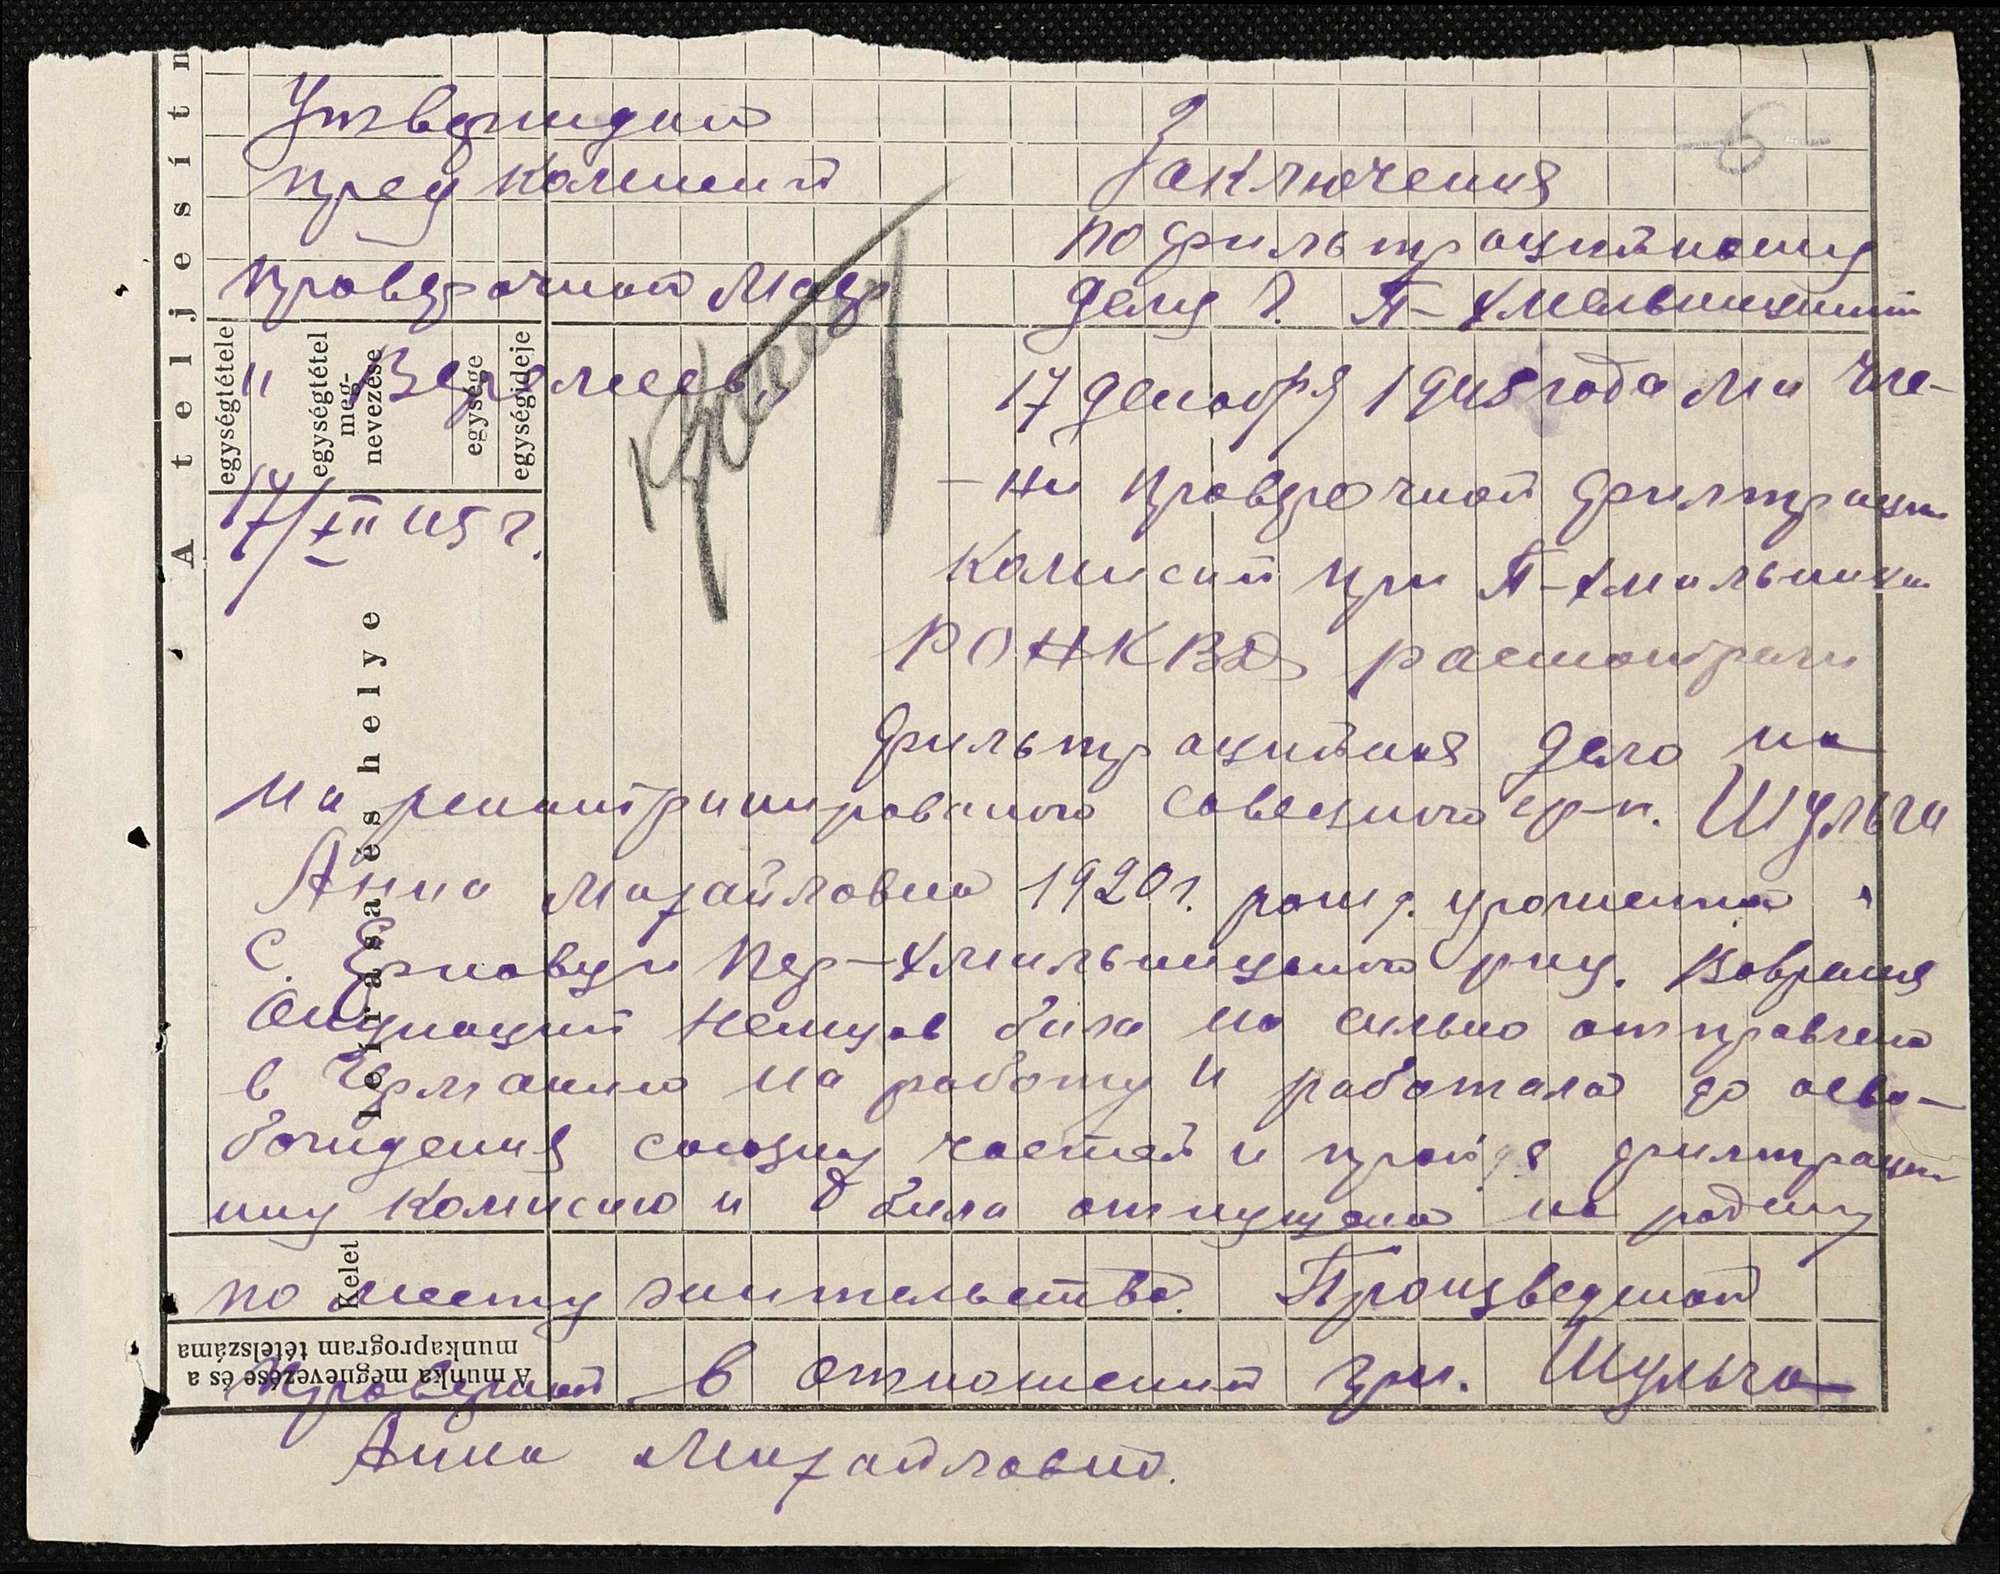 Утверждаю
пред комисий
проверочной Маер
17/XII 45 г.
-6-
Заключения
по фильтрацийному
делу г. П-Хмельницкий
17 декабря 1945 года Ми Чле-
-ни проверочной филтрации
комисий при П-Хмильники
РОНКВД расмотрели
фильтрацийная дело на
на репатриированого советцкого гр-н. Шульга
Анна Михайловна 1920 г. рожд. уроженка
с. Ерковци Пер-Хмильницкого рну. Вовремя
Окупаций немцов била на сильно отправлена
в Германию на работу и работала до осво-
бождения союзну частей и пройдя филтраций
ну комисию и била отпущена на родину
по месту жительства. Произведеной
проверкой в отношений гр-н. Шульга
Анна Михайловной.
Ateljesít
egységtétele
egységtétel
meg-
nevezése
egysége
egységideje
leírása és helye
Kelet
A munka megnevezése és a
munkaprogram tételszáma